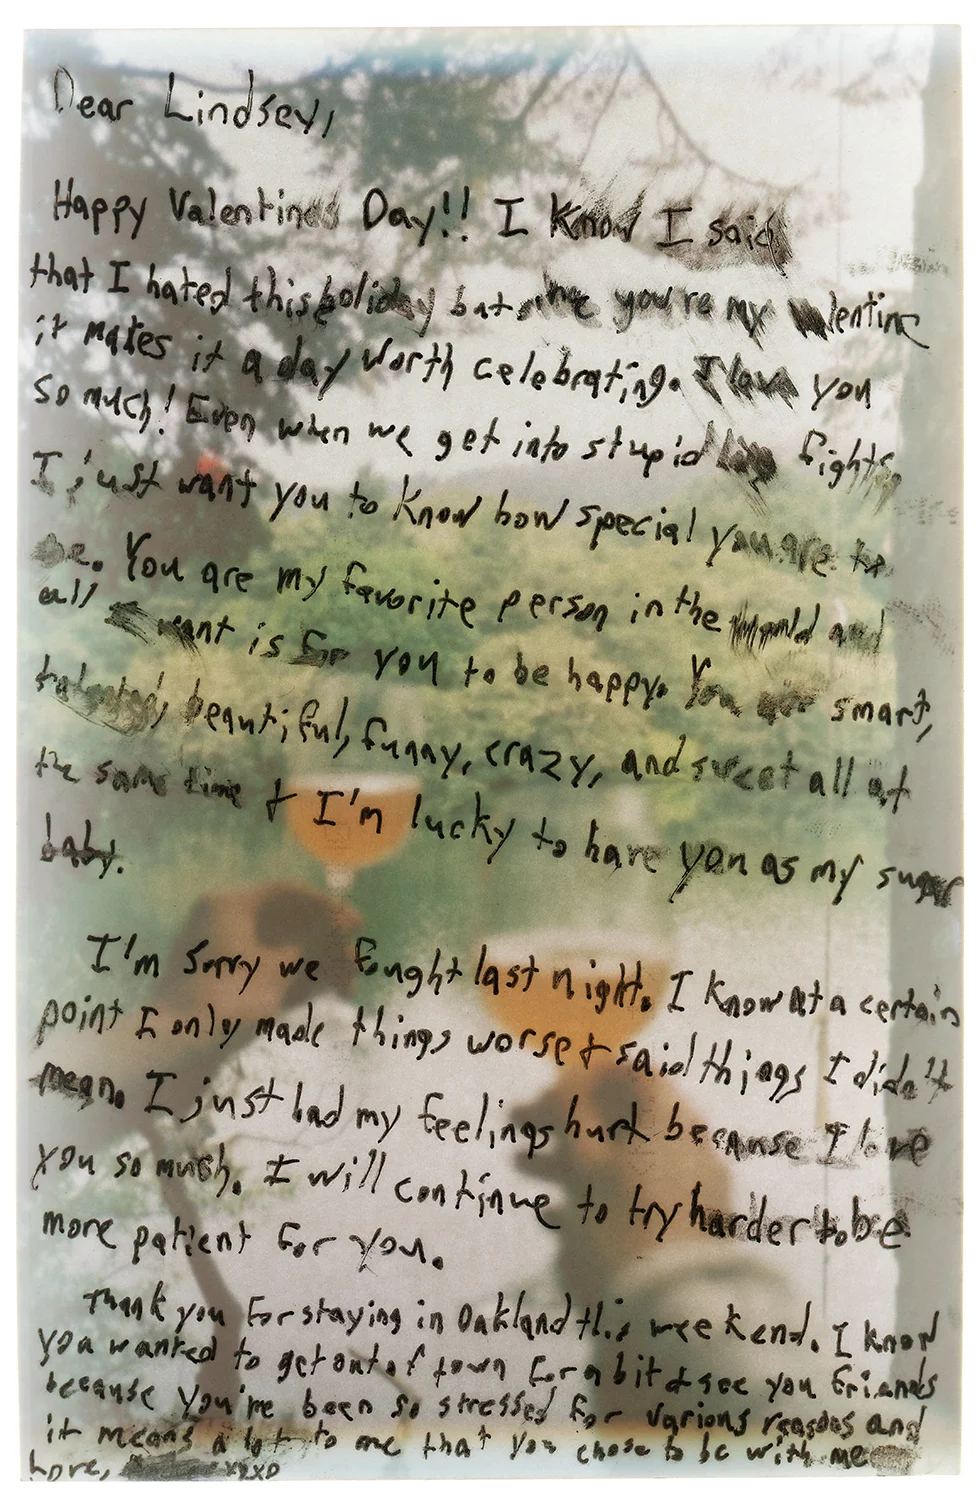 Dear Lindsey,
Happy Valentines Day!! I know I said
that I hated this holiday but since you're my valentine
it makes it a day worth celebrating. I love you
so much! Even when we get into stupid fights,
I just want you to know how special you are to
me. You are my favorite person in the world and
all I want is for you to be happy. You are smart,
talented, beautiful, funny, crazy, and sweet all at
the same time & I'm lucky to have you as my sugar
baby.
I'm sorry we fought last night. I know at a certain
point I only made things worse & said things I didn't
mean. I just had my feelings hurt because I love
you so much. I will continue to try harder to be
more patient for you.
Thank you for staying in Oakland this weekend. I know
you wanted to get out of town for a bit & see you friends
because you're been so stressed for various reasons and
it means a lot to me that you chose to be with me
Love, xoxo